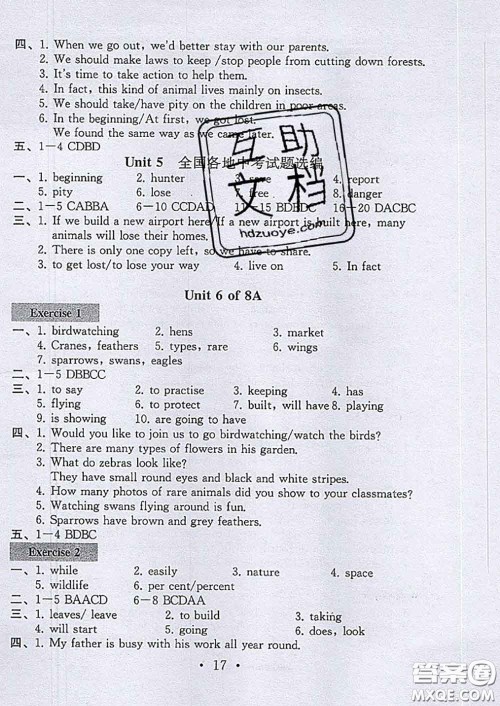 四、1. When we go out, we'd better stay with our parents.
2. We should make laws to keep /stop people from cutting down forests.
3. It's time to take action to help them.
4. In fact, this kind of animal lives mainly on insects.
5. We should take/have pity on the children in poor areas.
6. In the beginning/At first, we got lost.
We found the same way as we came before.
五、1－4 CDBD
Unit 5 全国各地中考试题选编
一、1. beginning 2. hunter 3. save 4. report
5. pity 6. lose 7. free 8. danger
二、1－5 CABBA 6－10 CCDAD 11－15 BDBDC 16－20 DACBC
三、1. If we build a new airport here/If a new airport is built here, many
animals will lose their homes.
2. There is only one copy left, so we have to share.
3. to get lost/to lose your way 4. live on 5. In fact
互助
文档
hdzuoye.com
Unit 6 of 8A
Exercise 1
一、1. birdwatching 2. hens 3. market
4. Cranes, feathers 5. types, rare 6. wings
7. sparrows, swans, eagles
二、1－5 DBBCC
三、1. to say 2. to practise 3. keeping 4. has
5. flying 6. to protect 7. built, will have 8. playing
9. is showing 10. are going to have
四、1. Would you like to join us to go birdwatching/watch the birds?
2. There are many types of flowers in his garden.
3. What do zebras look like?
They have small round eyes and black and white stripes.
4. How many photos of rare animals did you show to your classmates?
5. Watching swans flying around is fun.
6. Sparrows have brown and grey feathers.
五、1－4 BDBC
Exercise 2
一、1. while 2. easily 3. nature 4. space
5. wildlife 6. per cent/percent
二、1－5 BAACD 6－8 BCDAA
三、1. leaves/ leave 2. to build 3. taking
4. will start 5. going 6. does, look
四、1. My father is busy with his work all year round.
• 17 •
答案圈
MXQE.COM